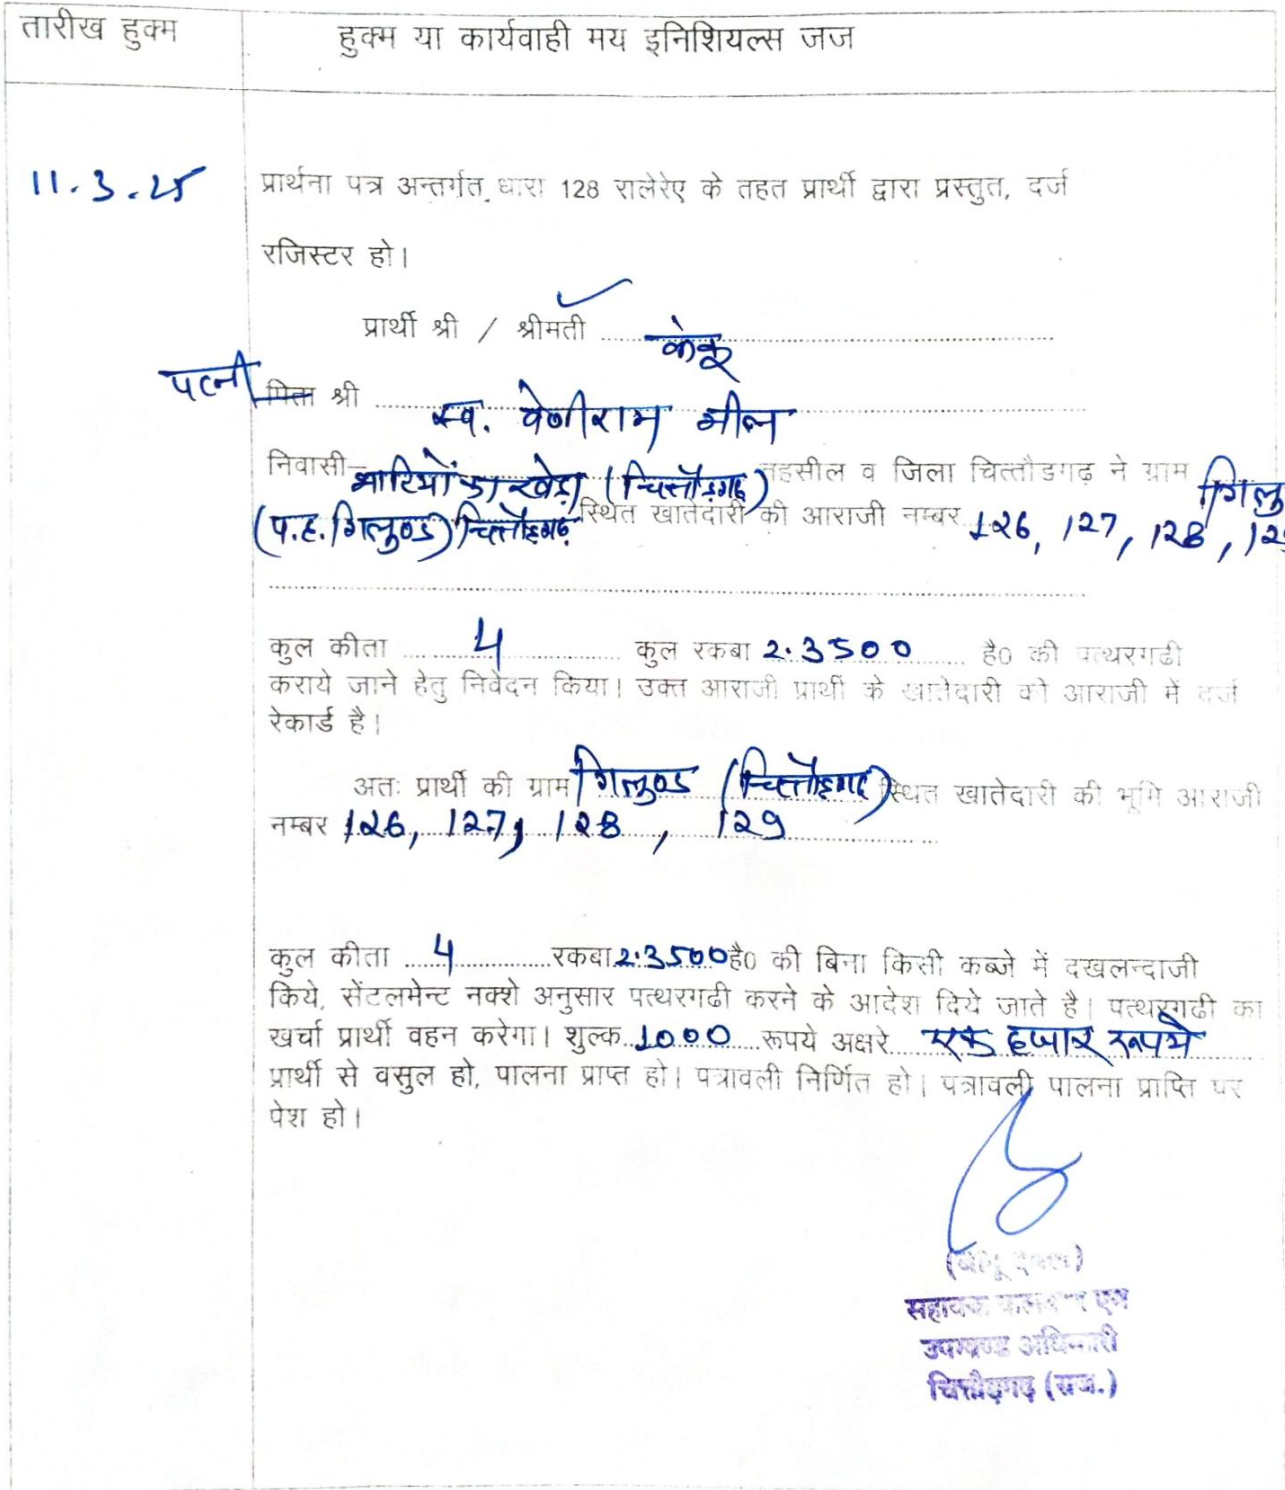 तारीख हुक्म
हुक्म या कार्यवाही मय इनिशियल्स जज
11.3.25
प्रार्थना पत्र अन्तर्गत धारा 128 रालेरेए के तहत प्रार्थी द्वारा प्रस्तुत, दर्ज
रजिस्टर हो।
प्रार्थी श्री / श्रीमती केकू
पत्नी पिता श्री स्व. वेणीराम भील
निवासी- भाटियों का खेड़ा (चित्तौड़गढ़) तहसील व जिला चित्तौडगढ़ ने ग्राम गिलु
(प.ह. गिलुण्ड) चित्तौड़गढ़ स्थित खातेदारी की आराजी नम्बर 126, 127, 128, 129
कुल कीता 4 कुल रकबा 2.3500 है0 की पत्थरगढी
कराये जाने हेतु निवेदन किया। उक्त आराजी प्रार्थी के खातेदारी की आराजी में दर्ज
रेकार्ड है।
अतः प्रार्थी की ग्राम गिलुण्ड (चित्तौड़गढ़) स्थित खातेदारी की भूमि आराजी
नम्बर 126, 127, 128, 129
कुल कीता 4 रकबा 2.3500 है0 की बिना किसी कब्जे में दखलन्दाजी
किये, सेंटलमेन्ट नक्शे अनुसार पत्थरगढी करने के आदेश दिये जाते है। पत्थरगढी का
खर्चा प्रार्थी वहन करेगा। शुल्क 1000 रूपये अक्षरे एक हजार रूपये
प्रार्थी से वसुल हो, पालना प्राप्त हो। पत्रावली निर्णित हो। पत्रावली पालना प्राप्ति पर
पेश हो।
सहायक कलक्टर एवं
उपखण्ड अधिकारी
चित्तौड़गढ़ (राज.)